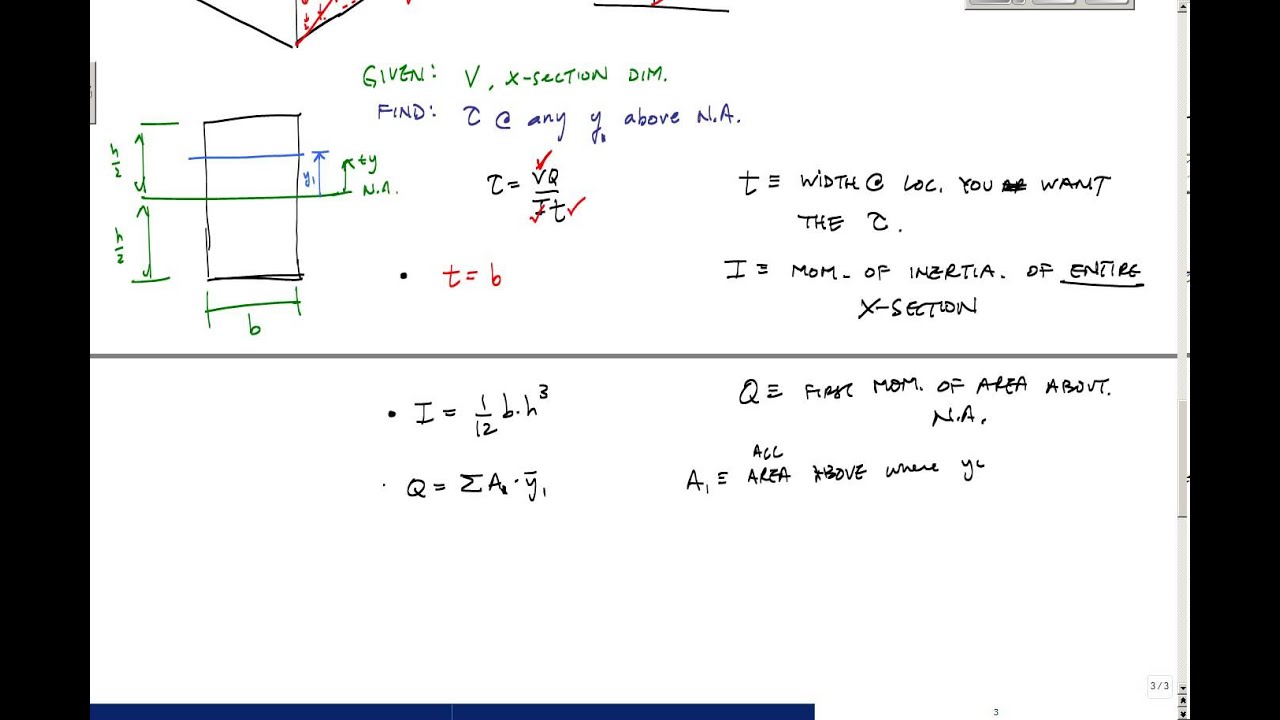 GIVEN: V, X-SECTION DIM.
FIND: τ @ any y₁ above N.A.
h/2
y₁
+y
N.A.
h/2
b
τ = VQ/It
t ≡ WIDTH @ LOC. YOU WANT
THE τ.
• t = b
I ≡ MOM. OF INERTIA. OF ENTIRE
X-SECTION
• I = 1/12 b·h³
Q ≡ FIRST MOM. OF AREA ABOUT.
N.A.
· Q = ΣA₁·ȳ₁
ALL
A₁ ≡ AREA ABOVE where yo
3/3
3